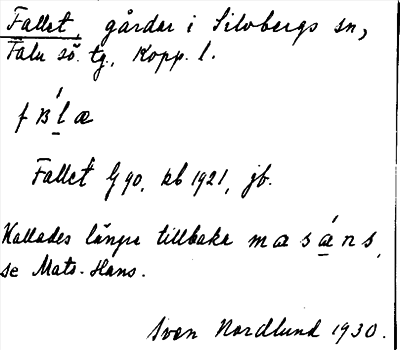 Fallet, gårdar i Silvbergs sn,
Falu sö. tg., Kopp. l.
Fallet Gg 90, kb 1921, jb.
Kallades längre tillbaka m a s á n s,
se Mats-Hans.
Sven Nordlund 1930.